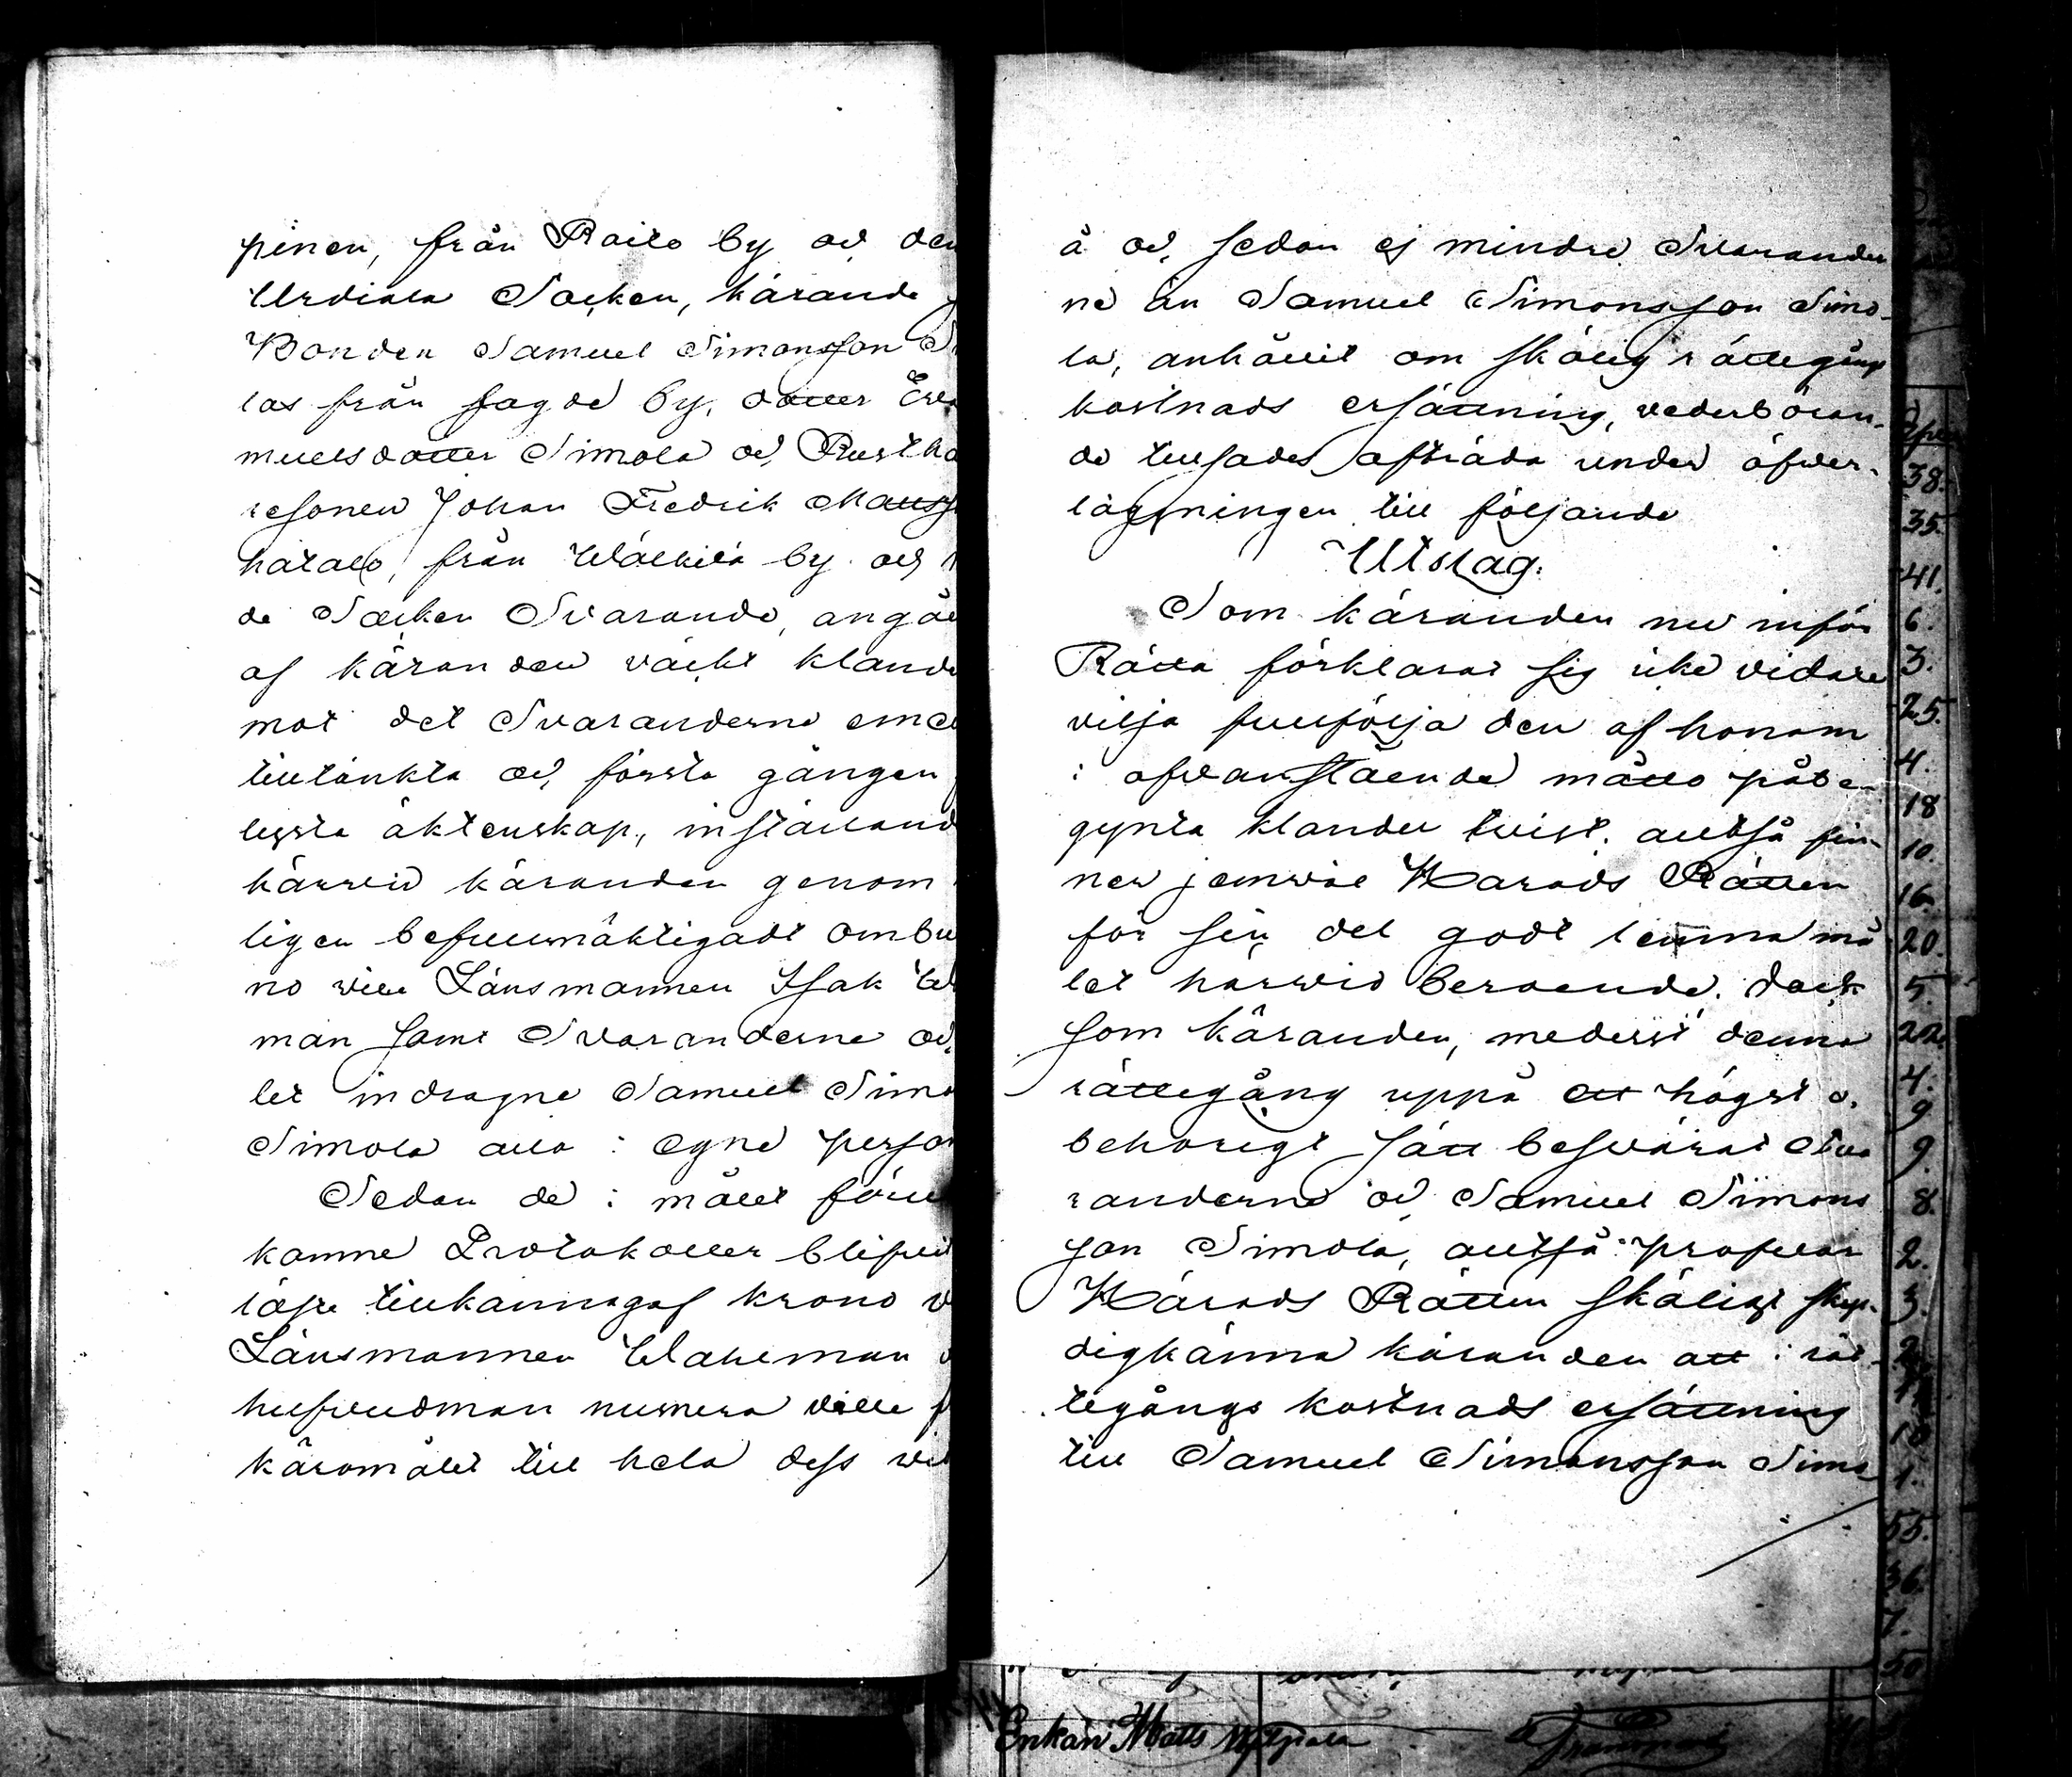 pinen, från Raito by och den
Urdiala Socken, kärande
Bonden Samuel Simonsson S
las från fagde by, dotter Eva
muelsdotter Simola och Rustha
resonen Johan Fredrik Matss
hatala, från Wälkilä by och
de Socken Svarande, angåe
af käranden väckt klande
mot det Svaranderne emel
tilltänkta och första gången
lysta äktenskap, inställand
härvid käranden genom
ligen befullmäktigadt ombu
no vice Länsmannen Isak W
man samt Svaranderne och
let indragne Samuel Simo
Simola alla i egne perso
Sedan de i målet föru
komne Protokoller blifvit
läste tillkännagaf krono v
Länsmannen Wahlman
hufvudman numera ville
käromålet till hela dess vid
å och, sedan ej mindre Svarander
ne än Samuel Simonsson Simo-
la, anhållit om skälig rättegångs
kostnads ersättning, vederböran-
de tillsades afträda under öfver-
läggningen till följande
Utslag:
Som käranden nu inför
Rätta förklarat sig icke vidare
vilja fullfölja den af honom
i ofvanstående måtto påbe-
gynta klander tvist, alltså fin-
ner jemväl Härads Rätten
för sin del godt lemna må
let härvid beroende. dock
som käranden, medelst denna
rättegång uppå ett högst o-
behörigt sätt besvärat Sva
randerne och Samuel Simons
son Simola, alltså pröfvar
Härads Rätten skäligt skyl-
digkänna käranden att i rät-
tegångs kostnads ersättning
till Samuel Simonsson Simo
38.
35.
41.
6.
3.
25.
4.
18
10.
16.
20.
5.
22.
4.
9
9.
8.
2.
3.
1.
55.
36.
7.
50
Enkan Matts